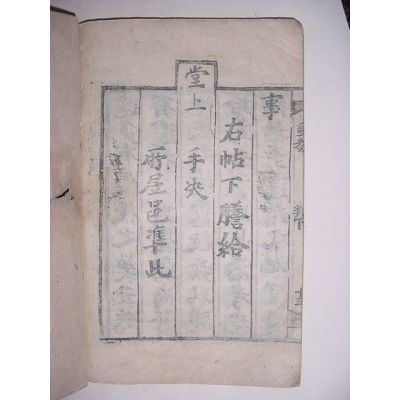 事
右帖下謄給
堂上 手决
所㞐邑準此